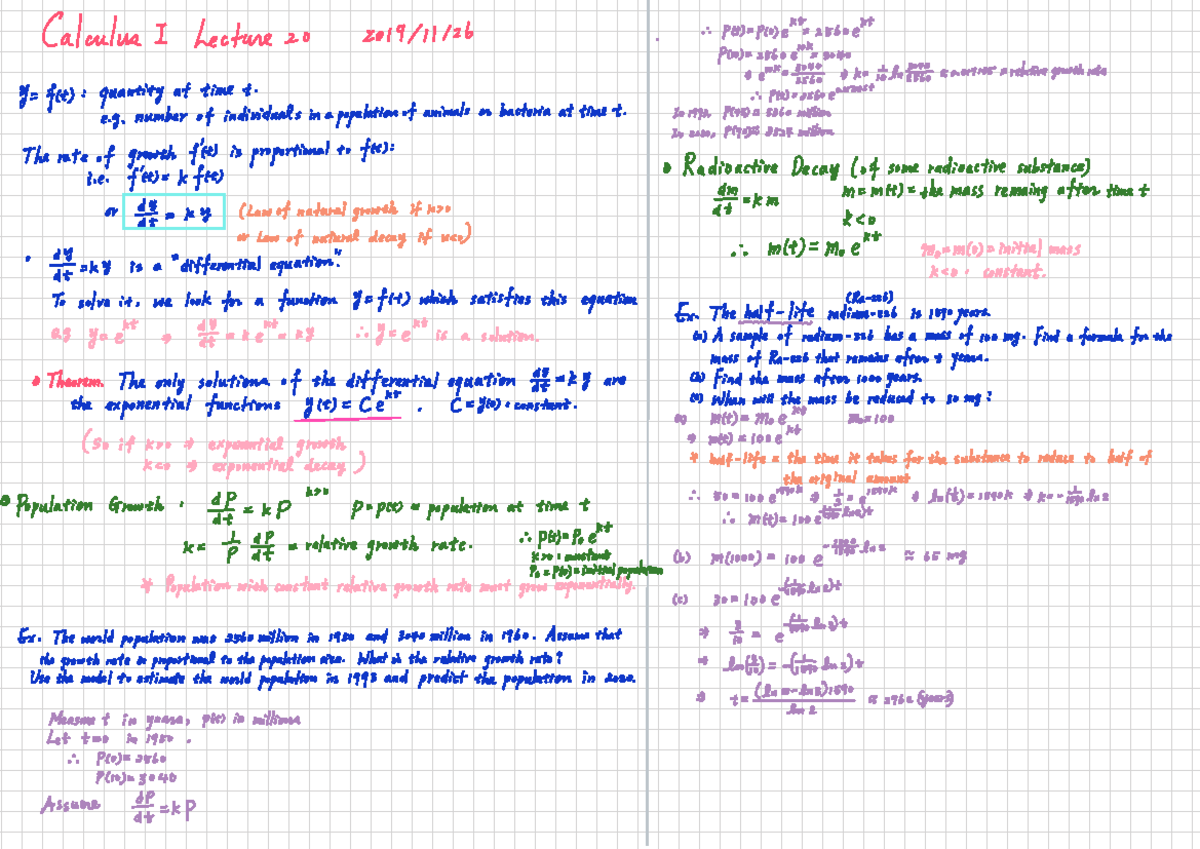 Calculus I Lecture 20 2019/11/26
y = f(t) : quantity at time t.
e.g. number of individuals in a population of animals or bacteria at time t.
The rate of growth f'(t) is proportional to f(t):
i.e. f'(t) = k f(t)
or dy/dt = k y (Law of natural growth if k>0
or Law of natural decay if k<0)
• dy/dt = k y is a "differential equation."
To solve it, we look for a function y = f(t) which satisfies this equation
e.g. y = e^{kt} ⇒ dy/dt = k e^{kt} = k y ∴ y = e^{kt} is a solution.
• Theorem. The only solutions of the differential equation dy/dt = k y are
the exponential functions y(t) = C e^{kt}. C = y(0) : constant.
(So if k>0 ⇒ exponential growth
k<0 ⇒ exponential decay)
• Population Growth : dP/dt = k P k>0 P = P(t) = population at time t
k = 1/P dP/dt = relative growth rate. ∴ P(t) = P₀ e^{kt}
k>0 : constant
P₀ = P(0) = initial population
* Population with constant relative growth rate must grow exponentially.
Ex. The world population was 2560 million in 1950 and 3040 million in 1960. Assume that
the growth rate is proportional to the population size. What is the relative growth rate?
Use the model to estimate the world population in 1993 and predict the population in 2020.
Measure t in years, P(t) in millions
Let t=0 in 1950.
∴ P(0) = 2560
P(10) = 3040
Assume dP/dt = k P
∴ P(t) = P(0) e^{kt} = 2560 e^{kt}
P(10) = 2560 e^{10k} = 3040
⇒ e^{10k} = 3040/2560 ⇒ k = 1/10 ln 3040/2560 = relative growth rate
In 1993, P(43) = 5360 million
• Radioactive Decay (of some radioactive substance)
dm/dt = k m m = m(t) = the mass remaing after time t
k<0
∴ m(t) = m₀ e^{kt} m₀ = m(0) = initial mass
k<0 : constant.
(Ra-226)
Ex. The half-life radium-226 is 1590 years.
(a) A sample of radium-226 has a mass of 100 mg. Find a formula for the
mass of Ra-226 that remains after t years.
(b) Find the mass after 1000 years.
(c) When will the mass be reduced to 30 mg?
(a) m(t) = m₀ e^{kt} m₀ = 100
⇒ m(t) = 100 e^{kt}
* half-life = the time it takes for the substance to reduce to half of
the original amount
∴ 50 = 100 e^{1590k} ⇒ 1/2 = e^{1590k} ⇒ ln(1/2) = 1590k ⇒ k = -1/1590 ln 2
∴ m(t) = 100 e^{(-1/1590 ln 2)t}
(b) m(1000) = 100 e^{-1000/1590 ln 2} ≈ 65 mg
(c) 30 = 100 e^{(-1/1590 ln 2)t}
⇒ 3/10 = e^{(-1/1590 ln 2)t}
⇒ ln(3/10) = -(1/1590 ln 2)t
ln 2 ≈ 2762 (years)